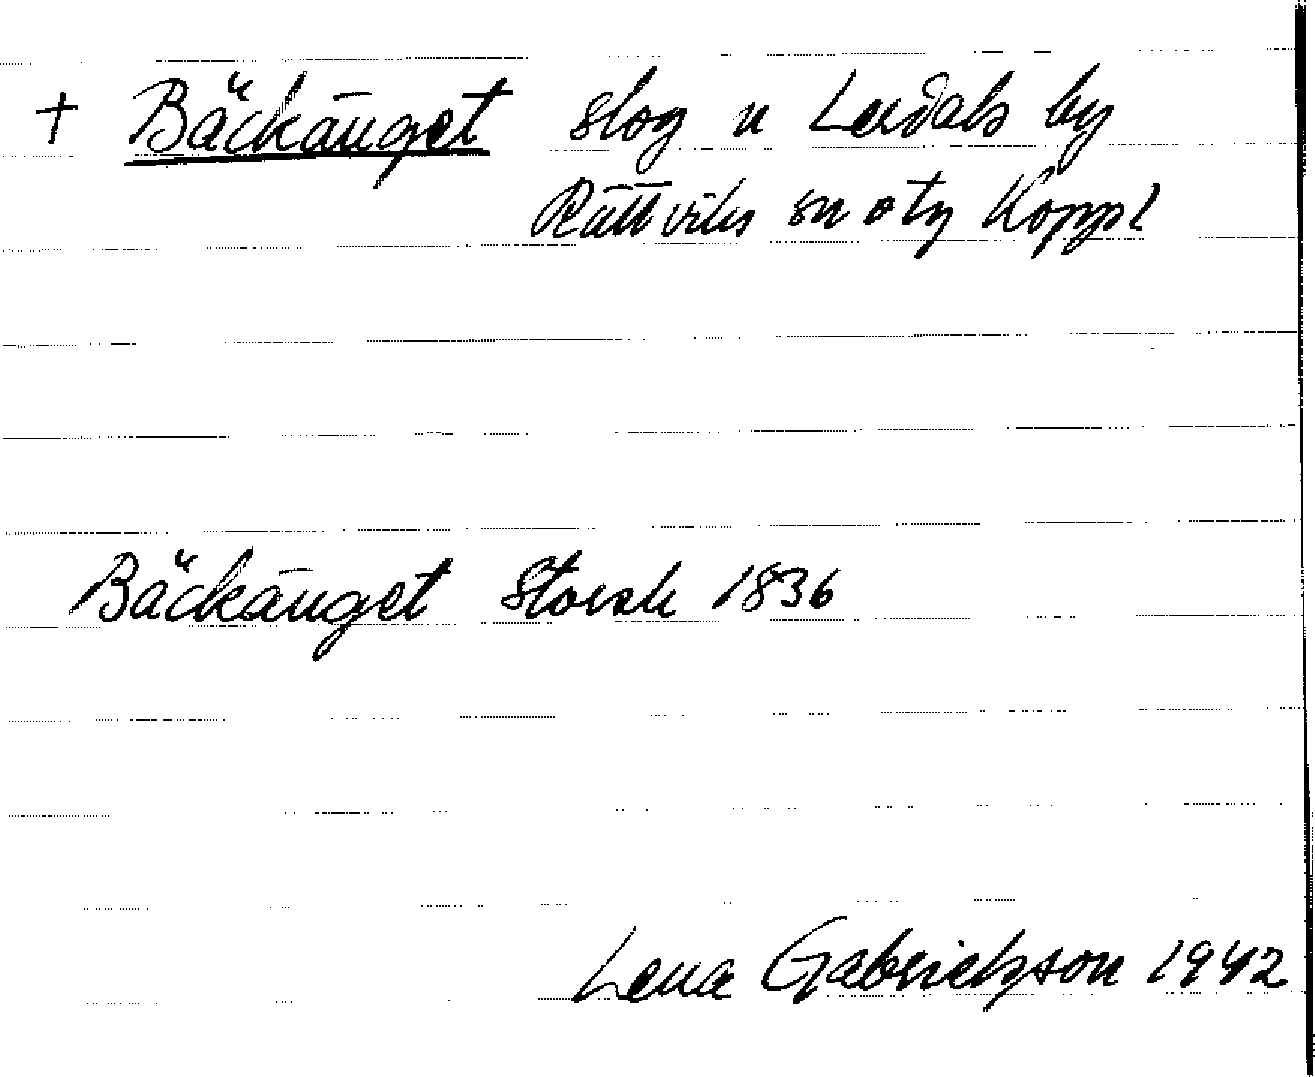 + Bäckänget slog n Lerdals by
Rättviks sn o tg Kopp l
Bäckänget Storsk 1836
Lena Gabrielsson 1942